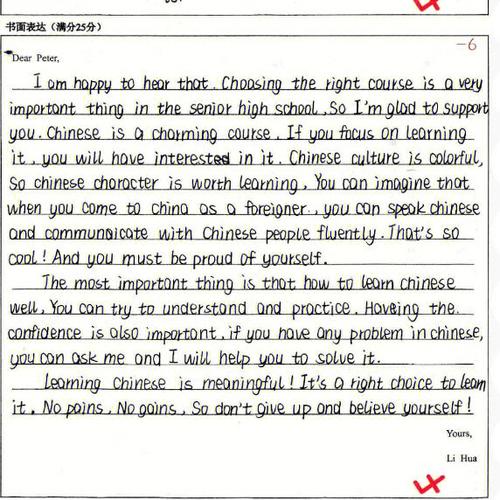 书面表达（满分25分）
-6
Dear Peter,
I am happy to hear that. Choosing the right course is a very
important thing in the senior high school, So I'm glad to support
you. Chinese is a charming course. If you focus on learning
it, you will have interested in it. Chinese culture is colorful,
So chinese character is worth learning. You can imagine that
when you come to china as a foreigner, you can speak chinese
and communicate with Chinese people fluently. That's so
cool! And you must be proud of yourself.
The most important thing is that how to learn chinese
well. You can try to understand and practice. Having the
confidence is also important. if you have any problem in chinese,
you can ask me and I will help you to solve it.
Learning Chinese is meaningful! It's a right choice to learn
it. No pains, No gains, So don't give up and believe yourself!
Yours,
Li Hua